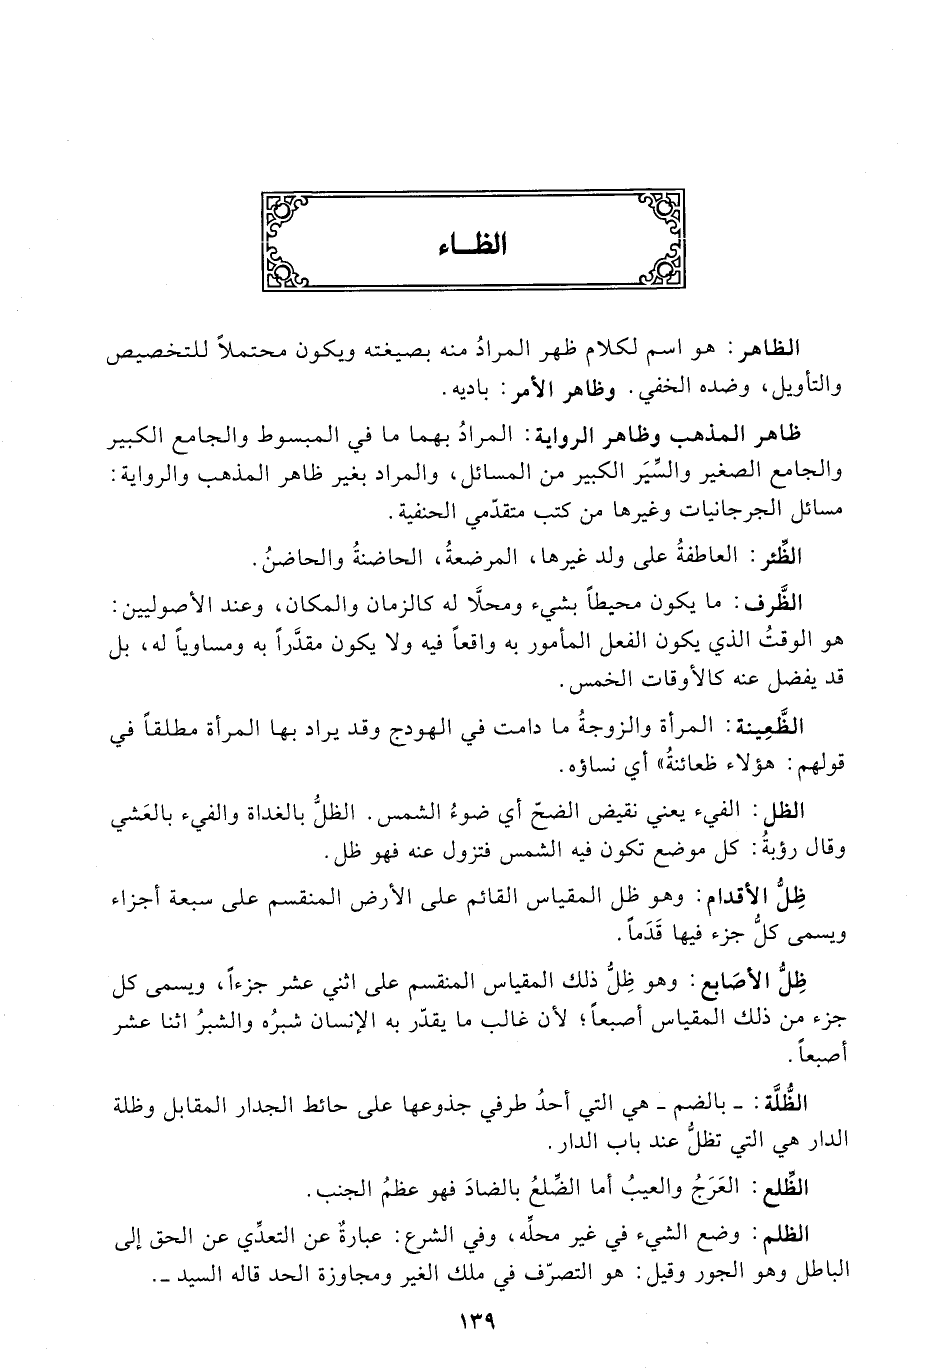 الظــاء
الظاهر: هو اسم لكلام ظهر المرادُ منه بصيغته ويكون محتملاً للتخصيص
والتأويل، وضده الخفي. وظاهر الأمر: باديه.
ظاهر المذهب وظاهر الرواية: المرادُ بهما ما في المبسوط والجامع الكبير
والجامع الصغير والسِّيَر الكبير من المسائل، والمراد بغير ظاهر المذهب والرواية:
مسائل الجرجانيات وغيرها من كتب متقدّمي الحنفية.
الظِّئر: العاطفةُ على ولد غيرها، المرضعةُ، الحاضنةُ والحاضنُ.
الظَّرف: ما يكون محيطاً بشيء ومحلَّا له كالزمان والمكان، وعند الأصوليين:
هو الوقتُ الذي يكون الفعل المأمور به واقعاً فيه ولا يكون مقدَّراً به ومساوياً له، بل
قد يفضل عنه كالأوقات الخمس.
الظَّعِينة: المرأة والزوجةُ ما دامت في الهودج وقد يراد بها المرأة مطلقاً في
قولهم: هؤلاء ظعائنةُ» أي نساؤه.
الظل: الفيء يعني نقيض الضحّ أي ضوءُ الشمس. الظلُّ بالغداة والفيء بالعَشي
وقال رؤبةُ: كل موضع تكون فيه الشمس فتزول عنه فهو ظل.
ظِلُّ الأقدام: وهو ظل المقياس القائم على الأرض المنقسم على سبعة أجزاء
ويسمى كلُّ جزء فيها قَدَماً.
ظِلُّ الأصَابع: وهو ظِلُّ ذلك المقياس المنقسم على اثني عشر جزءاً، ويسمى كل
جزء من ذلك المقياس أصبعاً؛ لأن غالب ما يقدّر به الإنسان شبرُه والشبرُ اثنا عشر
أصبعاً.
الظُّلَّة: ـ بالضم ـ هي التي أحدُ طرفي جذوعها على حائط الجدار المقابل وظلة
الدار هي التي تظلُّ عند باب الدار.
الظِّلع: العَرَجُ والعيبُ أما الضِّلعُ بالضادَ فهو عظمُ الجنب.
الظلم: وضع الشيء في غير محلِّه، وفي الشرع: عبارةٌ عن التعدِّي عن الحق إلى
الباطل وهو الجور وقيل: هو التصرّف في ملك الغير ومجاوزة الحد قاله السيد ـ.
١٣٩